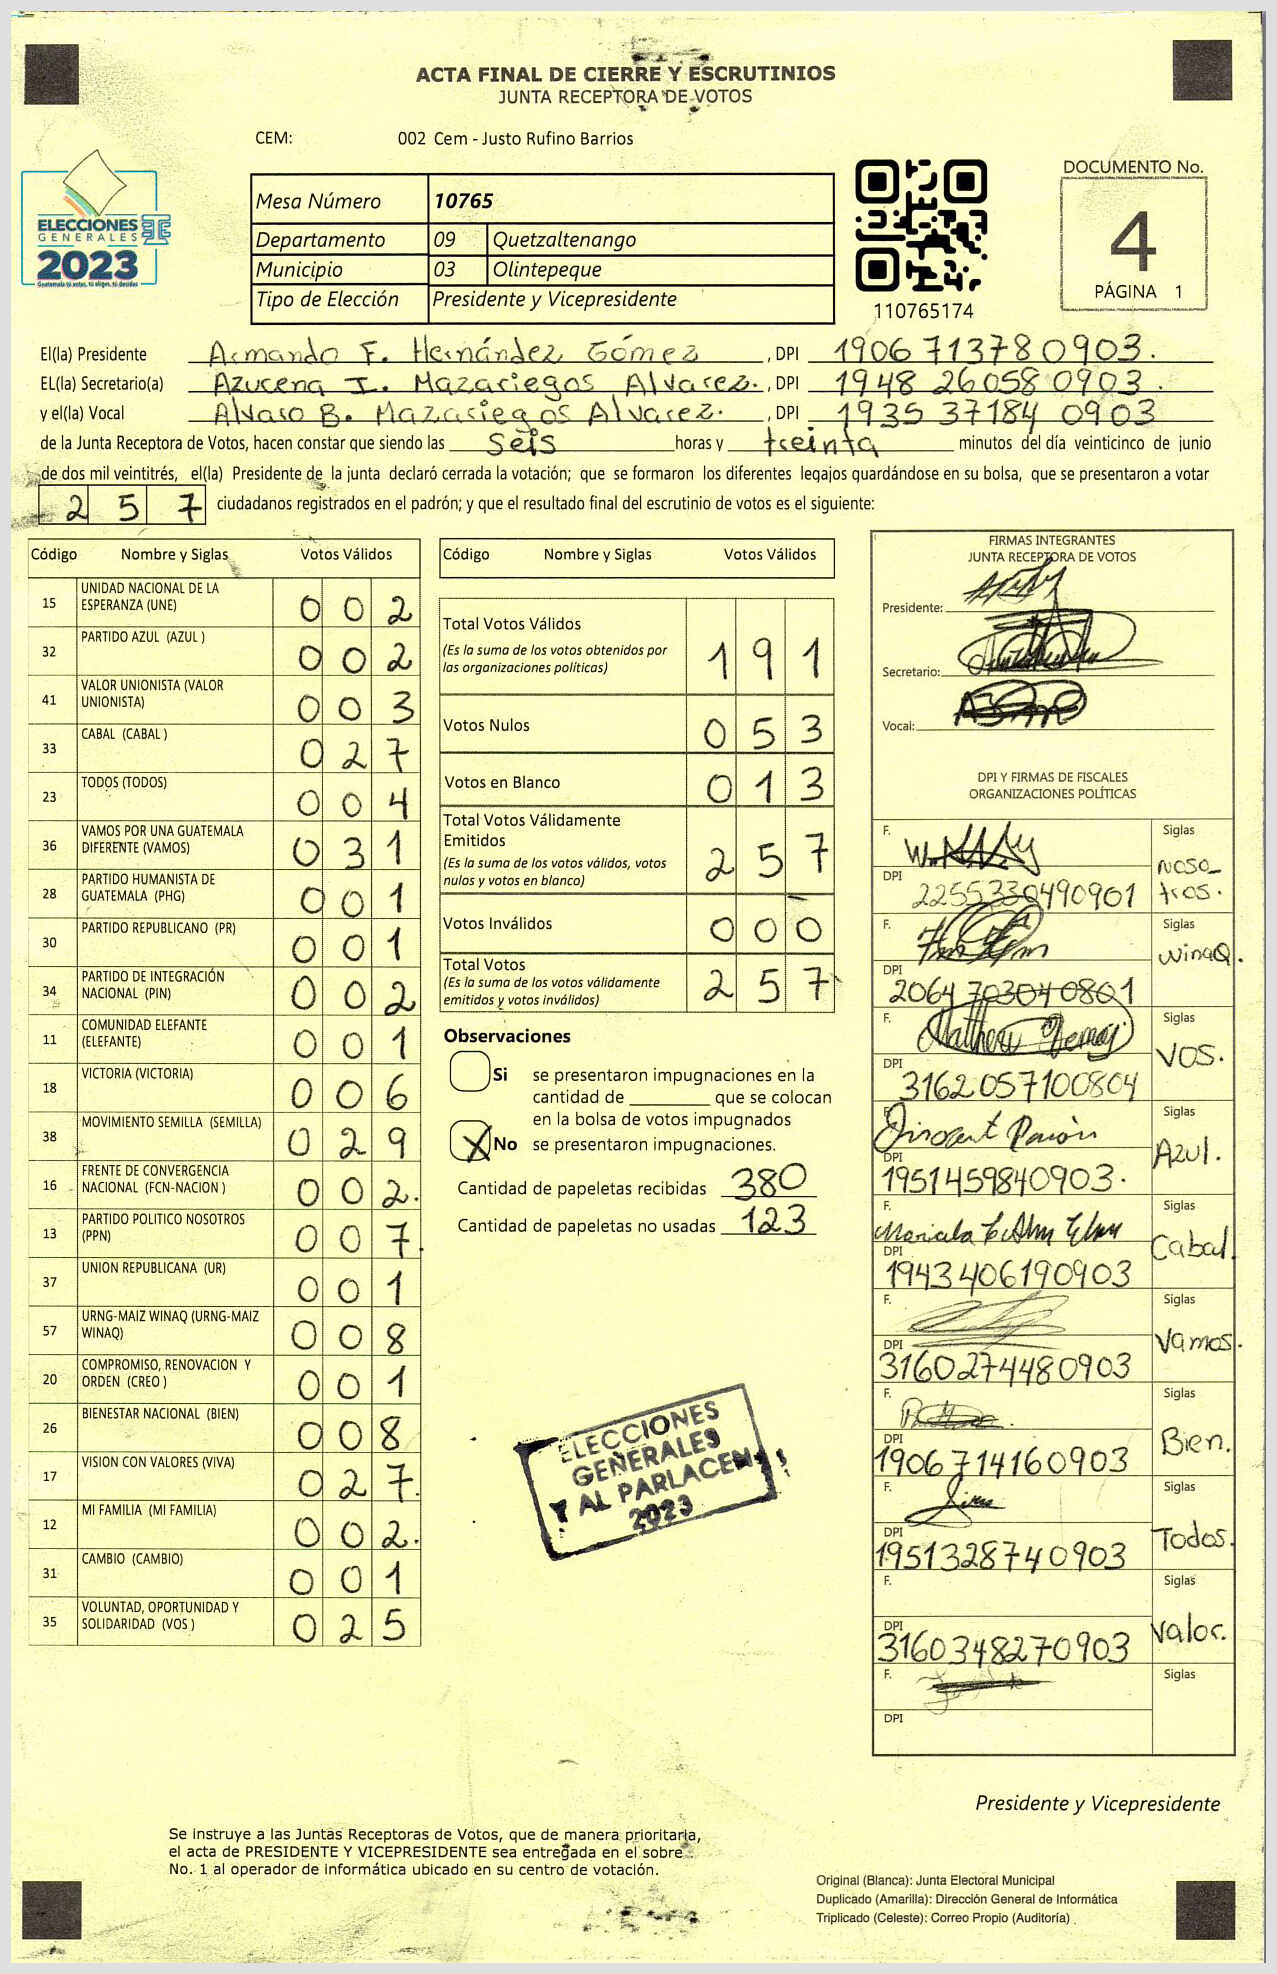 ACTA FINAL DE CIERRE Y ESCRUTINIOS
JUNTA RECEPTORA DE VOTOS
CEM: 002 Cem - Justo Rufino Barrios
ELECCIONES
GENERALES
2023
Mesa Número 10765
Departamento 09 Quetzaltenango
Municipio 03 Olintepeque
Tipo de Elección Presidente y Vicepresidente
110765174
DOCUMENTO No.
4
PÁGINA 1
El(la) Presidente Armando F. Hernández Gómez, DPI 1906 71378 0903.
EL(la) Secretario(a) Azucena I. Mazariegos Alvarez., DPI 1948 26058 0903.
y el(la) Vocal Alvaro B. Mazariegos Alvarez., DPI 1935 37184 0903
de la Junta Receptora de Votos, hacen constar que siendo las seis horas y treinta minutos del día veinticinco de junio
de dos mil veintitrés, el(la) Presidente de la junta declaró cerrada la votación; que se formaron los diferentes legajos quardándose en su bolsa, que se presentaron a votar
257 ciudadanos registrados en el padrón; y que el resultado final del escrutinio de votos es el siguiente:
Código Nombre y Siglas Votos Válidos
15 UNIDAD NACIONAL DE LA ESPERANZA (UNE) 002
32 PARTIDO AZUL (AZUL ) 002
41 VALOR UNIONISTA (VALOR UNIONISTA) 003
33 CABAL (CABAL ) 027
23 TODOS (TODOS) 004
36 VAMOS POR UNA GUATEMALA DIFERENTE (VAMOS) 031
28 PARTIDO HUMANISTA DE GUATEMALA (PHG) 001
30 PARTIDO REPUBLICANO (PR) 001
34 PARTIDO DE INTEGRACIÓN NACIONAL (PIN) 002
11 COMUNIDAD ELEFANTE (ELEFANTE) 001
18 VICTORIA (VICTORIA) 006
38 MOVIMIENTO SEMILLA (SEMILLA) 029
16 FRENTE DE CONVERGENCIA NACIONAL (FCN-NACION ) 002.
13 PARTIDO POLITICO NOSOTROS (PPN) 007.
37 UNION REPUBLICANA (UR) 001
57 URNG-MAIZ WINAQ (URNG-MAIZ WINAQ) 008
20 COMPROMISO, RENOVACION Y ORDEN (CREO ) 001
26 BIENESTAR NACIONAL (BIEN) 008
17 VISION CON VALORES (VIVA) 027.
12 MI FAMILIA (MI FAMILIA) 002.
31 CAMBIO (CAMBIO) 001
35 VOLUNTAD, OPORTUNIDAD Y SOLIDARIDAD (VOS ) 025
Código Nombre y Siglas Votos Válidos
Total Votos Válidos
(Es la suma de los votos obtenidos por
las organizaciones políticas) 191
Votos Nulos 053
Votos en Blanco 013
Total Votos Válidamente
Emitidos
(Es la suma de los votos válidos, votos
nulos y votos en blanco) 257
Votos Inválidos 000
Total Votos
(Es la suma de los votos válidamente
emitidos y votos inválidos) 257
Observaciones
Si se presentaron impugnaciones en la
cantidad de ________ que se colocan
en la bolsa de votos impugnados
X No se presentaron impugnaciones.
Cantidad de papeletas recibidas 380
Cantidad de papeletas no usadas 123
ELECCIONES
GENERALES
Y AL PARLACEN
2023
FIRMAS INTEGRANTES
JUNTA RECEPTORA DE VOTOS
Presidente:
Secretario:
Vocal:
DPI Y FIRMAS DE FISCALES
ORGANIZACIONES POLÍTICAS
F. Siglas
Noso-
tros.
DPI 2255330490901
F. Siglas
WinaQ.
DPI 2064 70304 0801
F. Siglas
VOS.
DPI 3162057100804
F. Siglas
Azul.
DPI 1951459840903.
F. Siglas
Cabal.
DPI 1943406190903
F. Siglas
Vamos.
DPI 3160274480903
F. Siglas
Bien.
DPI 1906714160903
F. Siglas
Todos.
DPI 1951328740903
F. Siglas
Valor.
DPI 3160348270903
F. Siglas
DPI
Presidente y Vicepresidente
Se instruye a las Juntas Receptoras de Votos, que de manera prioritaria,
el acta de PRESIDENTE Y VICEPRESIDENTE sea entregada en el sobre
No. 1 al operador de informática ubicado en su centro de votación.
Original (Blanca): Junta Electoral Municipal
Duplicado (Amarilla): Dirección General de Informática
Triplicado (Celeste): Correo Propio (Auditoría)